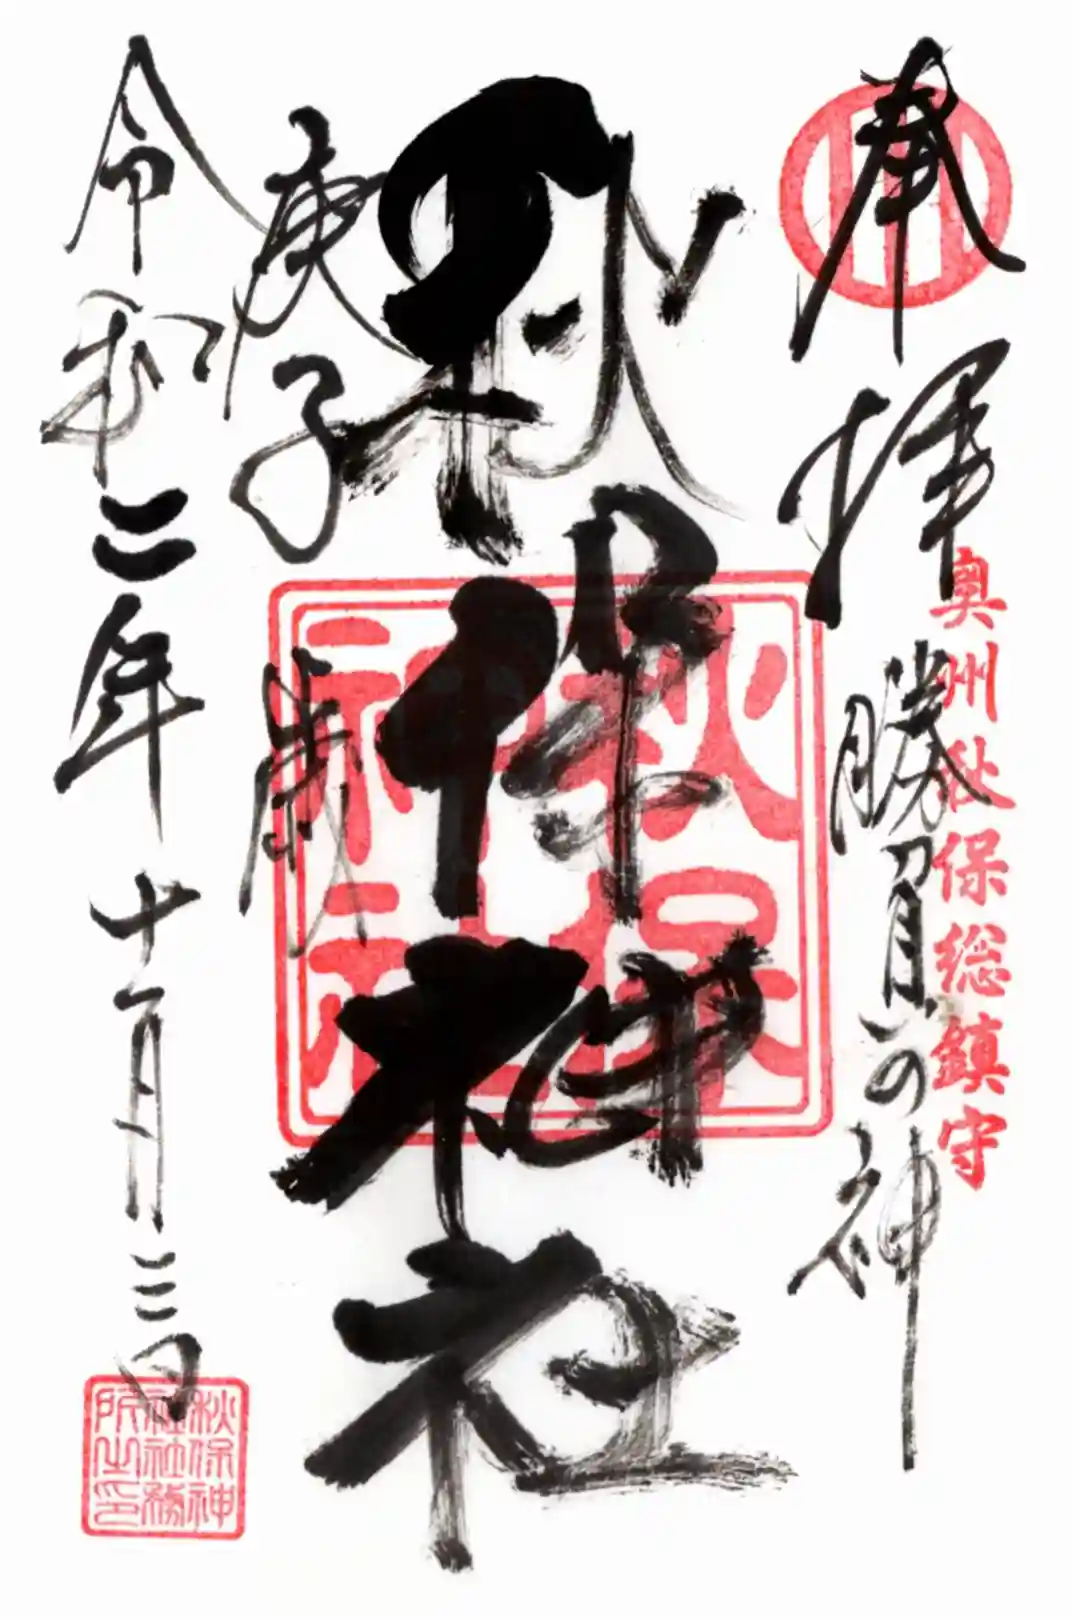 奉拝
奥州秋保総鎮守
勝負の神
秋保神社
秋保
神社
庚子歳
令和二年十一月三日
秋保神
社社務
所之印